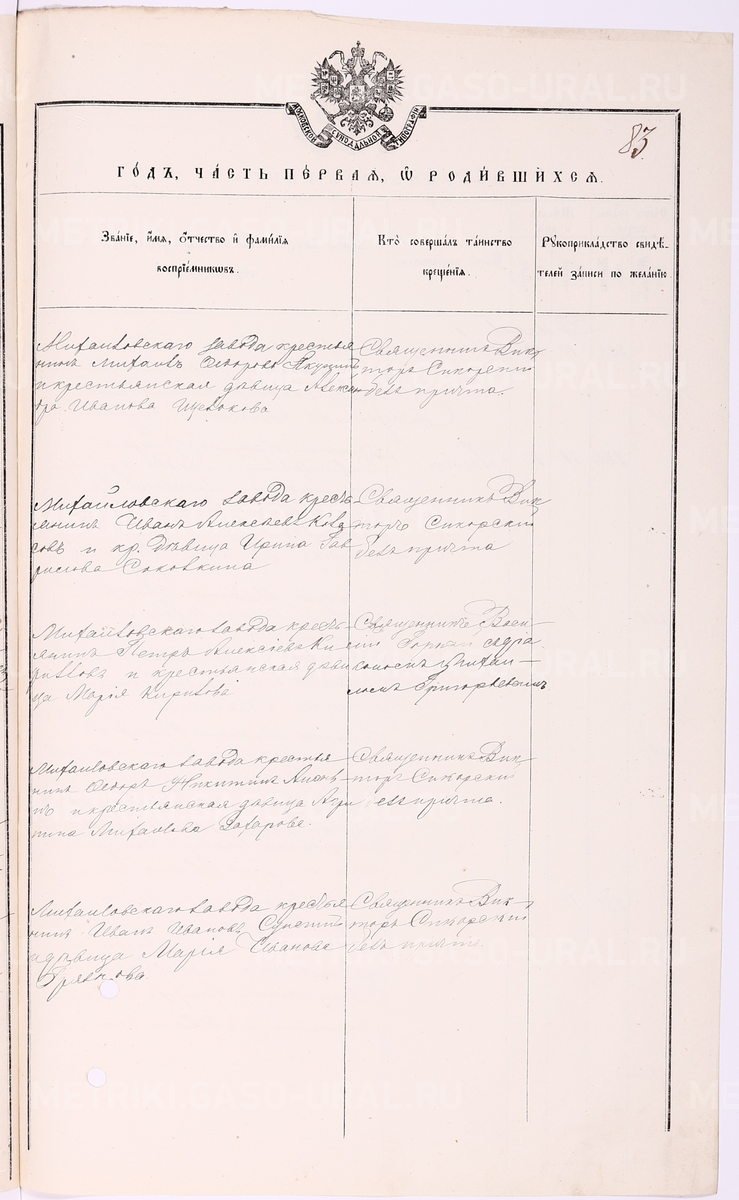 МОСКОВСКОЙ СѴНОДАЛЬНОЙ ТИПОГРАФІИ
83.
ГОДЪ, ЧАСТЬ ПЕРВАЯ, Ѡ РОДИВШИХСЯ.
Званіе, имя, отчество и фамилія
воспріемниковъ.
Кто совершалъ таинство
крещенія.
Рукоприкладство свидѣ-
телей записи по желанію
Михайловскаго завода крестья
нинъ Михаилъ Ѳедоровъ
и крестьянская дѣвица Алексан
дра Иванова Щенокова
Священникъ Вик
торъ Сикорскій
безъ причта.
Михайловскаго завода кресть
янинъ Иванъ Алексѣевъ
совъ и кр. дѣвица Ирина Гав
рилова Соковкина
Священникъ Вик
торъ Сикорскій
безъ причта
Михайловскаго завода кресть
янинъ Петръ Алексіевъ Ки
рилловъ и крестьянская дѣви
ца Марія Кирилова
Священникъ Васи
лій
Григорьевымъ
Михайловскаго завода крестья
нинъ Ѳедоръ Никитинъ
и крестьянская дѣвица Агри
пина Михайлова Захарова.
Священникъ Вик
торъ Сикорскій
безъ причта.
Михайловскаго завода крестья
нинъ Иванъ Ивановъ
и дѣвица Марія Иванова
Священникъ Вик
торъ Сикорскій
безъ причта.
METRIKI.GASO-URAL.RU